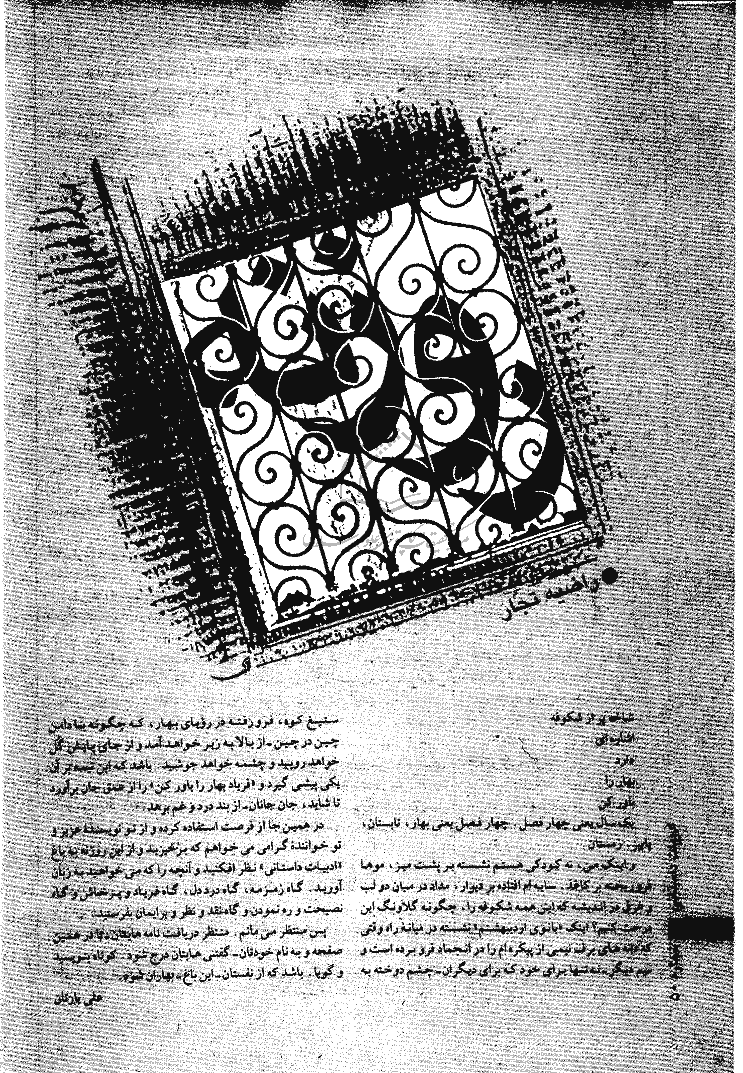 راضیه تجار
شاخه پر از شکوفه
اشاره ای
دارد
بهار را
باور کن
یک سال یعنی چهار فصل. چهار فصل یعنی بهار، تابستان،
پاییز، زمستان.
و اینک من، نه کودکی هستم نشسته بر پشت میز، موها
فرو ریخته بر کاغذ. سایه ام افتاده بر دیوار، مداد در میان دو لب
و غرق در اندیشه که این همه شکوفه را، چگونه گلاونگ این
درخت کنم؟ اینک «بانوی اردیبهشتم» نشسته در میانهٔ راه وقتی
که دانه های برف نیمی از پیکره ام را در انجماد فرو برده است و
نیم دیگر ـ نه تنها برای خود که برای دیگران ـ چشم دوخته به
ستیغ کوه، فرو رفته در رؤیای بهار، که چگونه با دامن
چین در چین ـ از بالا به زیر خواهد آمد و از جای پایش گل
خواهد رویید و چشمه خواهد جوشید. باشد که این نیمه بر آن
یکی پیشی گیرد و «فریاد بهار را باور کن» را از عمق جان برآورد
تا شاید، جان جانان ـ از بند درد و غم برهد.
در همین جا از فرصت استفاده کرده و از تو نویسندهٔ عزیز و
تو خوانندهٔ گرامی می خواهم که برخیزید و از این روزنه به باغ
«ادبیات داستانی» نظر افکنید و آنچه را که می خواهید به زبان
آورید. گاه زمزمه، گاه درد دل، گاه فریاد و پرخاش و گاه
نصیحت و ره نمودن و گاه نقد و نظر و برایمان بفرستید.
پس منتظر می مانم. منتظر دریافت نامه هایتان. تا در همین
صفحه و به نام خودتان ـ گفتنی هایتان درج شود. کوتاه بنویسید
و گویا. باشد که از نفستان ـ این باغ ـ بهاران شود.